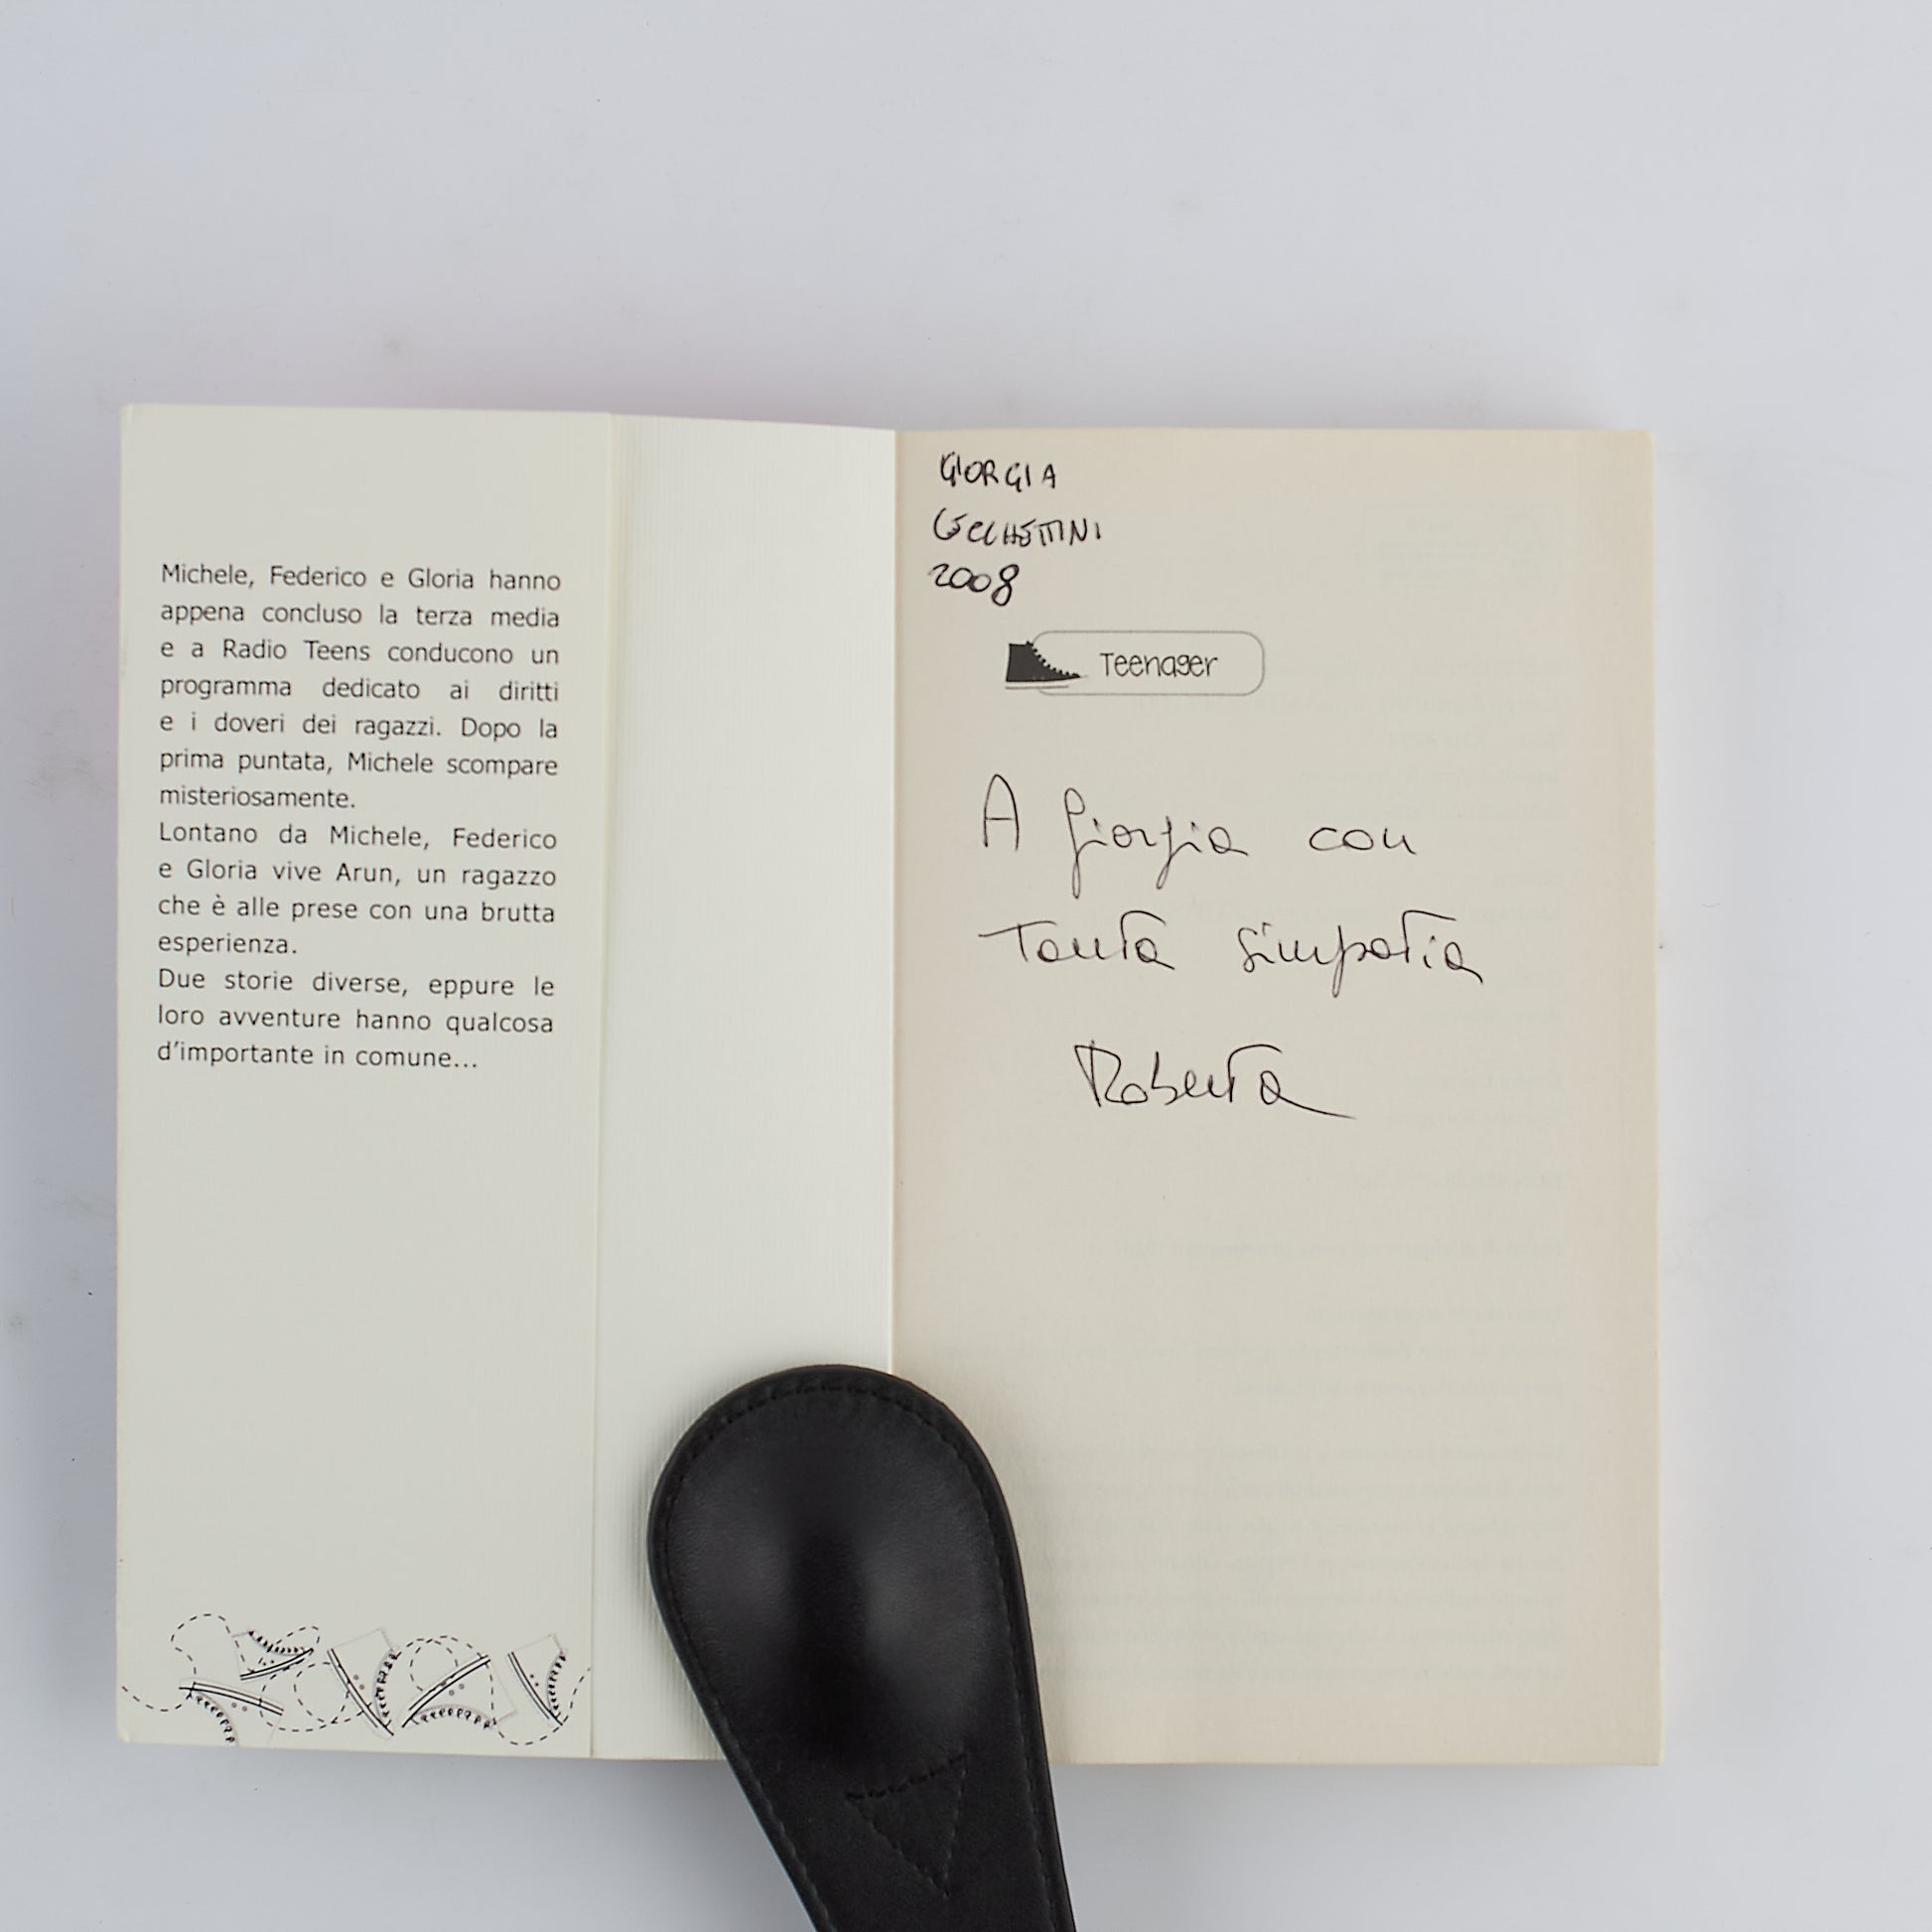 Michele, Federico e Gloria hanno
appena concluso la terza media
e a Radio Teens conducono un
programma dedicato ai diritti
e i doveri dei ragazzi. Dopo la
prima puntata, Michele scompare
misteriosamente.
Lontano da Michele, Federico
e Gloria vive Arun, un ragazzo
che è alle prese con una brutta
esperienza.
Due storie diverse, eppure le
loro avventure hanno qualcosa
d'importante in comune...
GIORGIA
2008
Teenager
A Giorgia con
tanta simpatia
Roberta